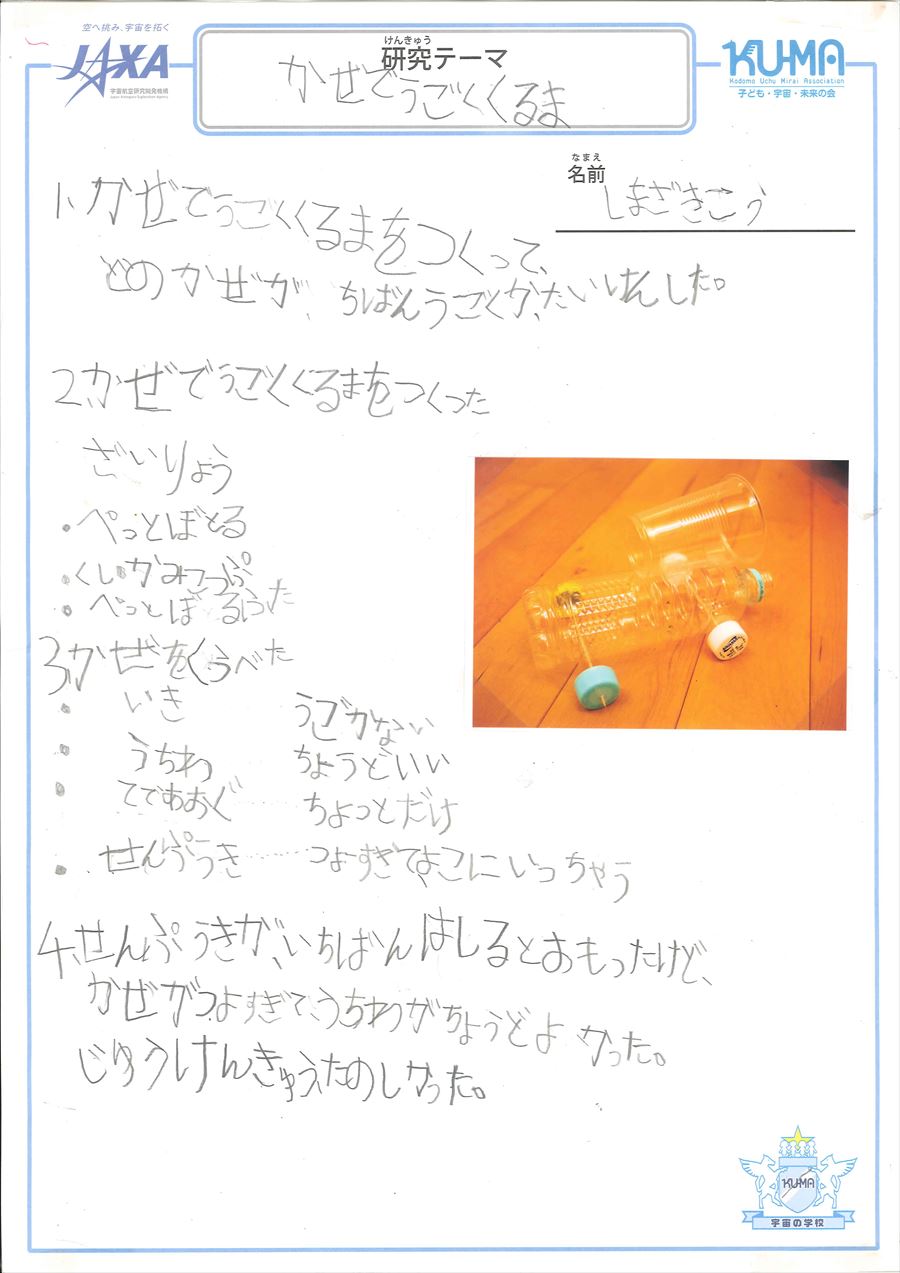 空へ挑み、宇宙を拓く
JAXA
宇宙航空研究開発機構
Japan Aerospace Exploration Agency
けんきゅう
研究テーマ
かぜでうごくくるま
KUMA
Kodomo Uchu Mirai Association
子ども・宇宙・未来の会
なまえ
名前
しまざきごう
1、かぜでうごくくるまをつくって、
どのかぜが、ちばんうごくか、たいけんした。
2、かぜでうごくくるまをつくった
ざいりょう
・ぺっとぼとる
・くしかみこっぷ
・ぺっとぼるふた
3、かぜをくらべた
・いき うごかない
・うちわ ちょうどいい
・てであおぐ……ちょっとだけ
・せんぷうき……つよすぎてよこにいっちゃう
4、せんぷうきが、いちばんはしるとおもったけど、
かぜがつよすぎて、うちわがちょうどよかった。
じゆうけんきゅう、たのしかった。
KUMA
宇宙の学校